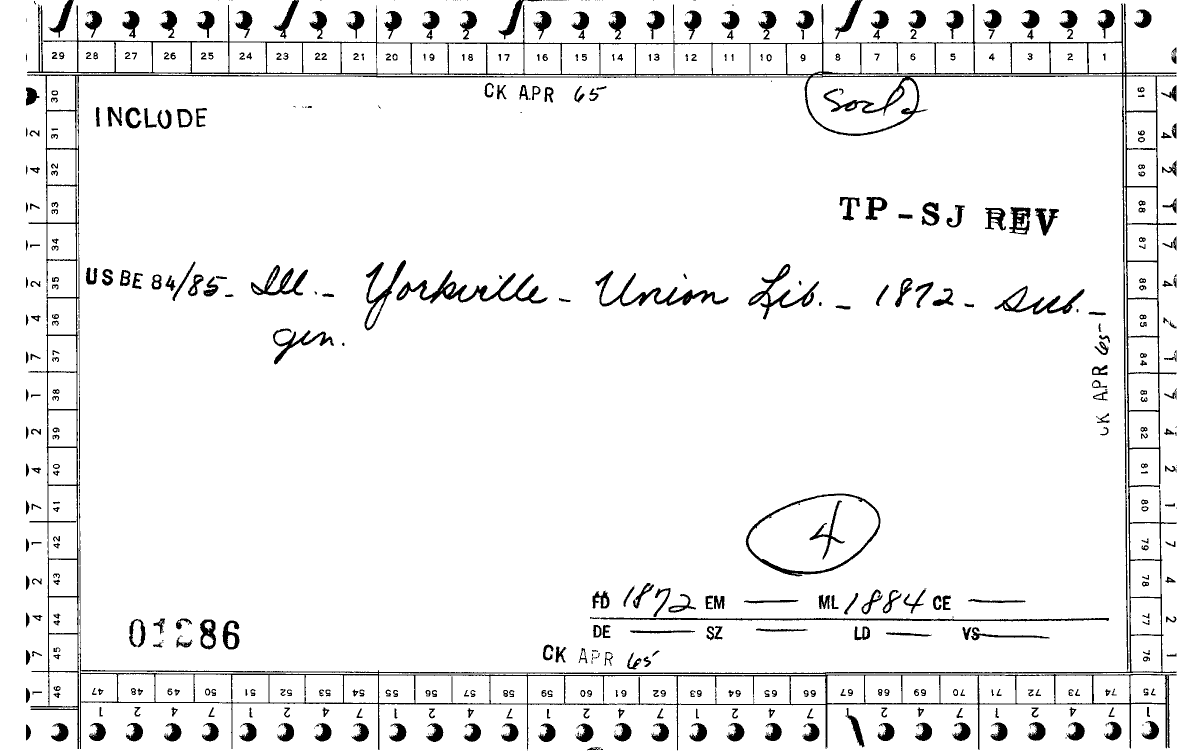 29 28 27 26 25 24 23 22 21 20 19 18 17 16 15 14 13 12 11 10 9 8 7 6 5 4 3 2 1
CK APR 65
INCLUDE
TP-SJ REV
USBE 84/85- Ill. - Yorkville - Union Lib. - 1872 - sub. -
gen.
CK APR 65
4
FD 1872 EM — ML 1884 CE —
DE — SZ — LD — VS —
01286
CK APR 65
30 31 32 33 34 35 36 37 38 39 40 41 42 43 44 45 46
91 90 89 88 87 86 85 84 83 82 81 80 79 78 77 76 75
47 48 49 50 51 52 53 54 55 56 57 58 59 60 61 62 63 64 65 66 67 68 69 70 71 72 73 74